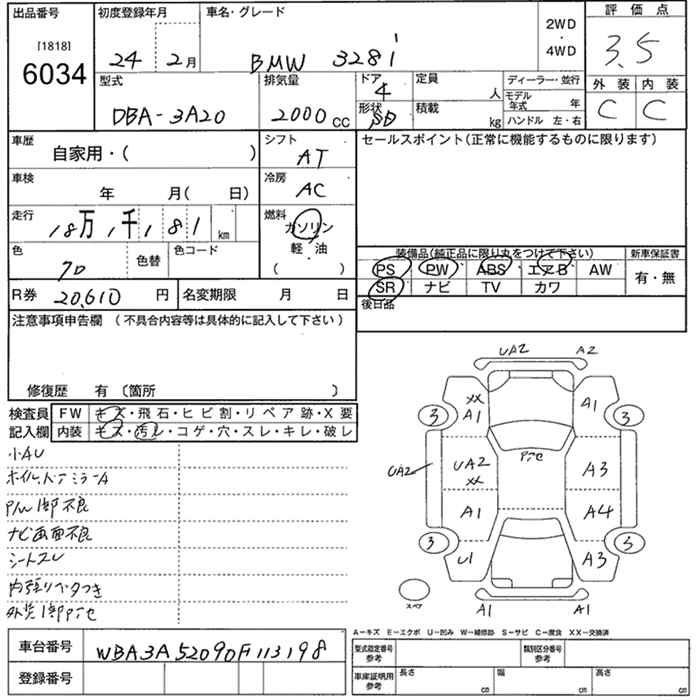 出品番号 初度登録年月 車名・グレード 2WD・4WD 評価点
[1818] 6034 24 2月 BMW 328i 3.5
外装 内装
C C
型式 排気量 ドア 定員 ディーラー・並行
DBA-3A20 2000cc 4 人 モデル年式 年
形状 積載 ハンドル 左・右
SD kg
車歴 シフト セールスポイント(正常に機能するものに限ります)
自家用・( ) AT
車検 冷房
年 月( 日) AC
走行 燃料
18万1千181 km ガソリン
軽・油
( )
色 色替 色コード
クロ
装備品(純正品に限り丸をつけて下さい) 新車保証書
PS PW ABS エアB AW 有・無
SR ナビ TV カワ
R券 20,610円 名変期限 月 日 後日品
注意事項申告欄 (不具合内容等は具体的に記入して下さい)
修復歴 有 〔箇所 〕
検査員 FW キズ・飛石・ヒビ割・リペア跡・X要
記入欄 内装 キズ・汚レ・コゲ・穴・スレ・キレ・破レ
小AU
P/W1部不良
ナビ画面不良
シートスレ
内張りベタつき
UA2 A2
XX A1 A1
3 3
UA2 UA2 XX A3
A1 A4
3 3
U1 A3
スペア A1 A1
A−キズ E−エクボ U−凹み W−補修跡 S−サビ C−腐食 XX−交換済
車台番号 WBA3A52090F113198
登録番号
型式指定番号 参考 類別区分番号 参考
車庫証明用 参考 長さ cm 幅 cm 高さ cm